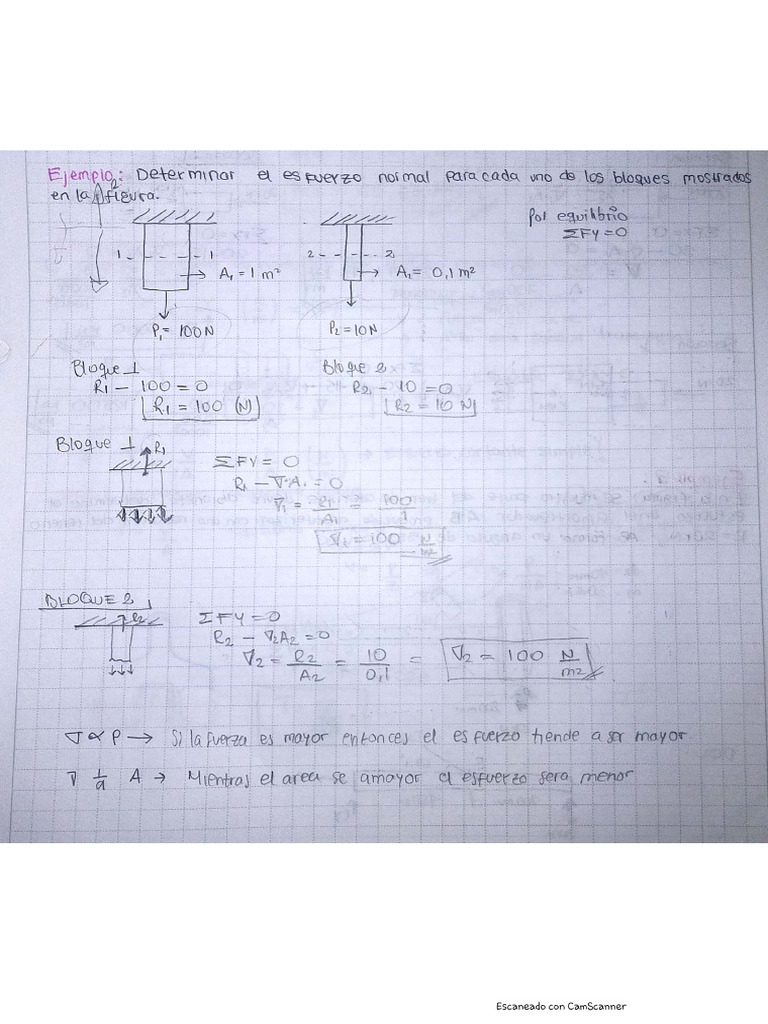 Ejemplo2: Determinar el esfuerzo normal para cada uno de los bloques mostrados
en la figura.
Por equilibrio
ΣFY=0
1 1
A1 = 1 m²
P1= 100N
2 2
A2= 0,1m²
P2=10N
Bloque 1
R1 - 100 = 0
R1 = 100 (N)
Bloque 2
R2 - 10 = 0
R2 = 10 N
Bloque 1
R1
ΣFY= 0
R1 - ∇·A1 = 0
∇1 = R1/A1 = 100/1
∇1 = 100 N/m2
BLOQUE 2
R2
ΣFY=0
R2 - ∇2A2 = 0
∇2 = R2/A2 = 10/0,1 = ∇2 = 100 N/m2
∇ ∝ P → Si la fuerza es mayor entonces el esfuerzo tiende a ser mayor
∇ 1/a A → Mientras el area se amayor el esfuerzo sera menor
Escaneado con CamScanner